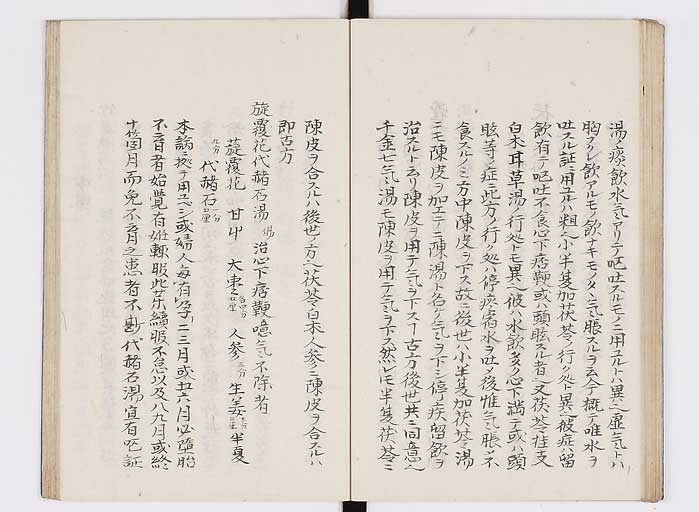 湯ハ痰飲水気アリテ嘔吐スルモノニ用ユルトハ異也虚気トハ
胸フレ飲アルモノ飲ナキモノタヽ気脹スルヲ云今概テ唯水ヲ
吐スル証ニ用ユルハ粗也小半夏加茯苓ノ行ク処ト異也彼症ハ留
飲有テ嘔吐不食心下痞鞕或ハ頭眩スル者也又茯苓桂支
白朮耳草湯ノ行ク処トモ異也彼ハ水飲多ク心下満テ或ハ頭
眩等ノ症ニ此方ノ行ク処ハ停痰宿水ヲ吐ノ後惟気脹シ不
食スルノミ方中陳皮ヲ下ス故ニ後世ハ小半夏加茯苓湯
ニモ陳皮ヲ加エテ二陳湯ト名ケ気ヲ下シ停痰留飲ヲ
治スルト云リ陳皮ヲ用テ気ヲ下スヿ古方後世共ニ同意也
千金七気湯モ陳皮ヲ用テ気ヲ下ス然レモ半夏茯苓ニ
陳皮ヲ合スルハ後世ノ方也茯苓白朮人参ニ陳皮ヲ合スルハ
即古方
旋覆花代赭石湯 傷 治心下痞鞕噫気不除者
旋覆花 甘艸 大棗 人参 生姜 半夏
代赭石
本論ニ按テ用ユヘシ或婦人毎有孕二三月或五六月必堕胎
不育者始覚有娠輒服此茱續服不怠以及八九月或終
十箇月而免不育之患者不尠代赭石湯宜有嘔証